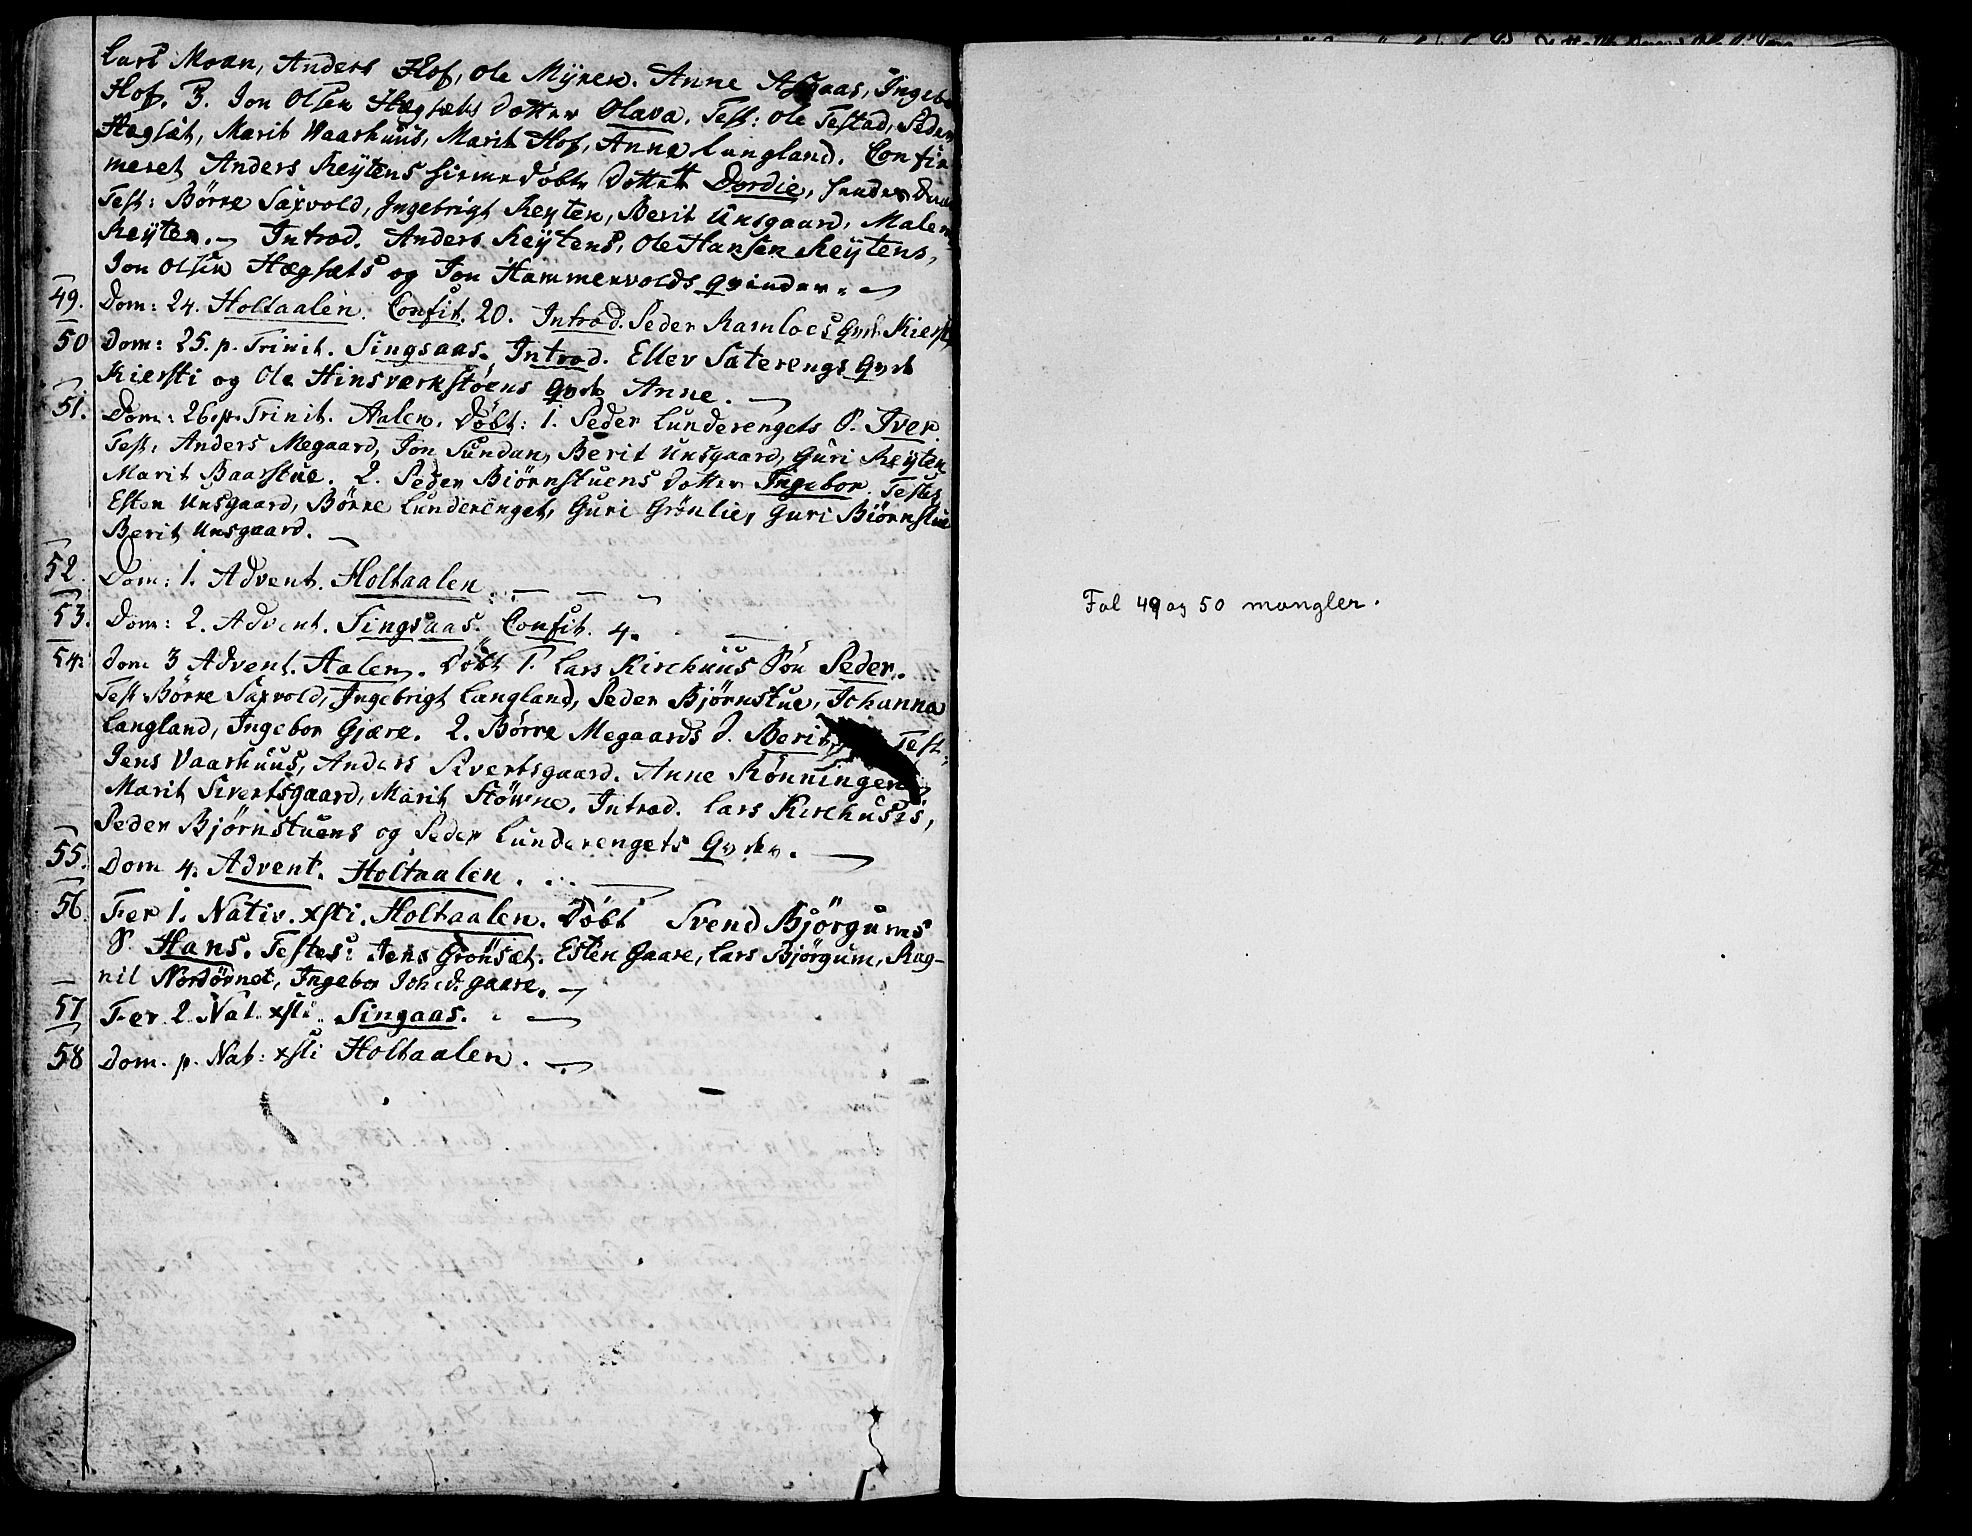 Lars Moan, Anders Hof, Ole Mÿren. Anne Aasgaas, Ingebor
Hof. 3. Jon Olsen Hægsæts dotter Olava. Test: Ole Testad, Peder
Hægsæt, Marit Vaarhuus, Marit Hof, Anne Lungland. Confir-
meret Anders Reÿtens hiemedöbte Dotter Dordie,
Test: Börre Saxvold, Ingebrigt Reyten, Berit Unsgaard, Malene
Reÿten. Introd. Anders Reÿtens, Ole Hansen Reÿtens,
Jon Olsen Hægsæts og Jon Hammervolds Qvinder.
49. Dom: 24. Holtaalen. Confit. 20. Introd. Peder Ramloes Qvde Kiersti
50 Dom: 25. p. Trinit. Singsaas. Introd. Ellev Sæterengs Qvde
Kiersti og Ole Hinsværkstöens Qvde Anne.
51. Dom: 26. p. Trinit. Aalen. Döbt: 1. Peder Lunderengets S. Iver.
Test, Anders Megaard, Jon Sundan, Berit Unsgaard, Guri Reÿten
Marit Baarstue. 2. Peder Biörnstuens dotter Ingebor. Testes
Esten Unsgaard, Börre Lunderenget, Guri Grönlie, Guri Biörnstue
Berit Unsgaard.
52. Dom: 1. Advent. Holtaalen
53. Dom: 2. Advent. Singsaas. Confit. 4.
54: dom 3 Advent. Aalen. Döbt 1. Lars Kirchuus Sön Peder.
Test Börre Saxvold, Ingebrigt Langland, Peder Bjørnstue, Johanna
Langland, Ingebor Gjære. 2. Börre Megaards d. Berit Test:
Jens Vaarhuus, Anders Sivertsgaard. Anne Rönningen
Marit Sivertsgaard, Marit Stöwne. Introd. Lars Kirchusis,
Peder Bjørnstuens og Peder Lunderengets Qvder.
55. Dom 4. Advent. Holtaalen.
56. Fer 1. Nativ. xsti. Holtaalen. Döbt Svend Bjørgums
S. Hans. Testes: Jens Grönsæt. Esten Gaare, Lars Bjørgum, Rag-
nil Nordörnet, Ingebor Joh: d. gaare.
57 Fer 2 Nat. xsti Singaas.
58 Dom. p. Nat: xsti Holtaalen.
Fol 49 og 50 mangler.